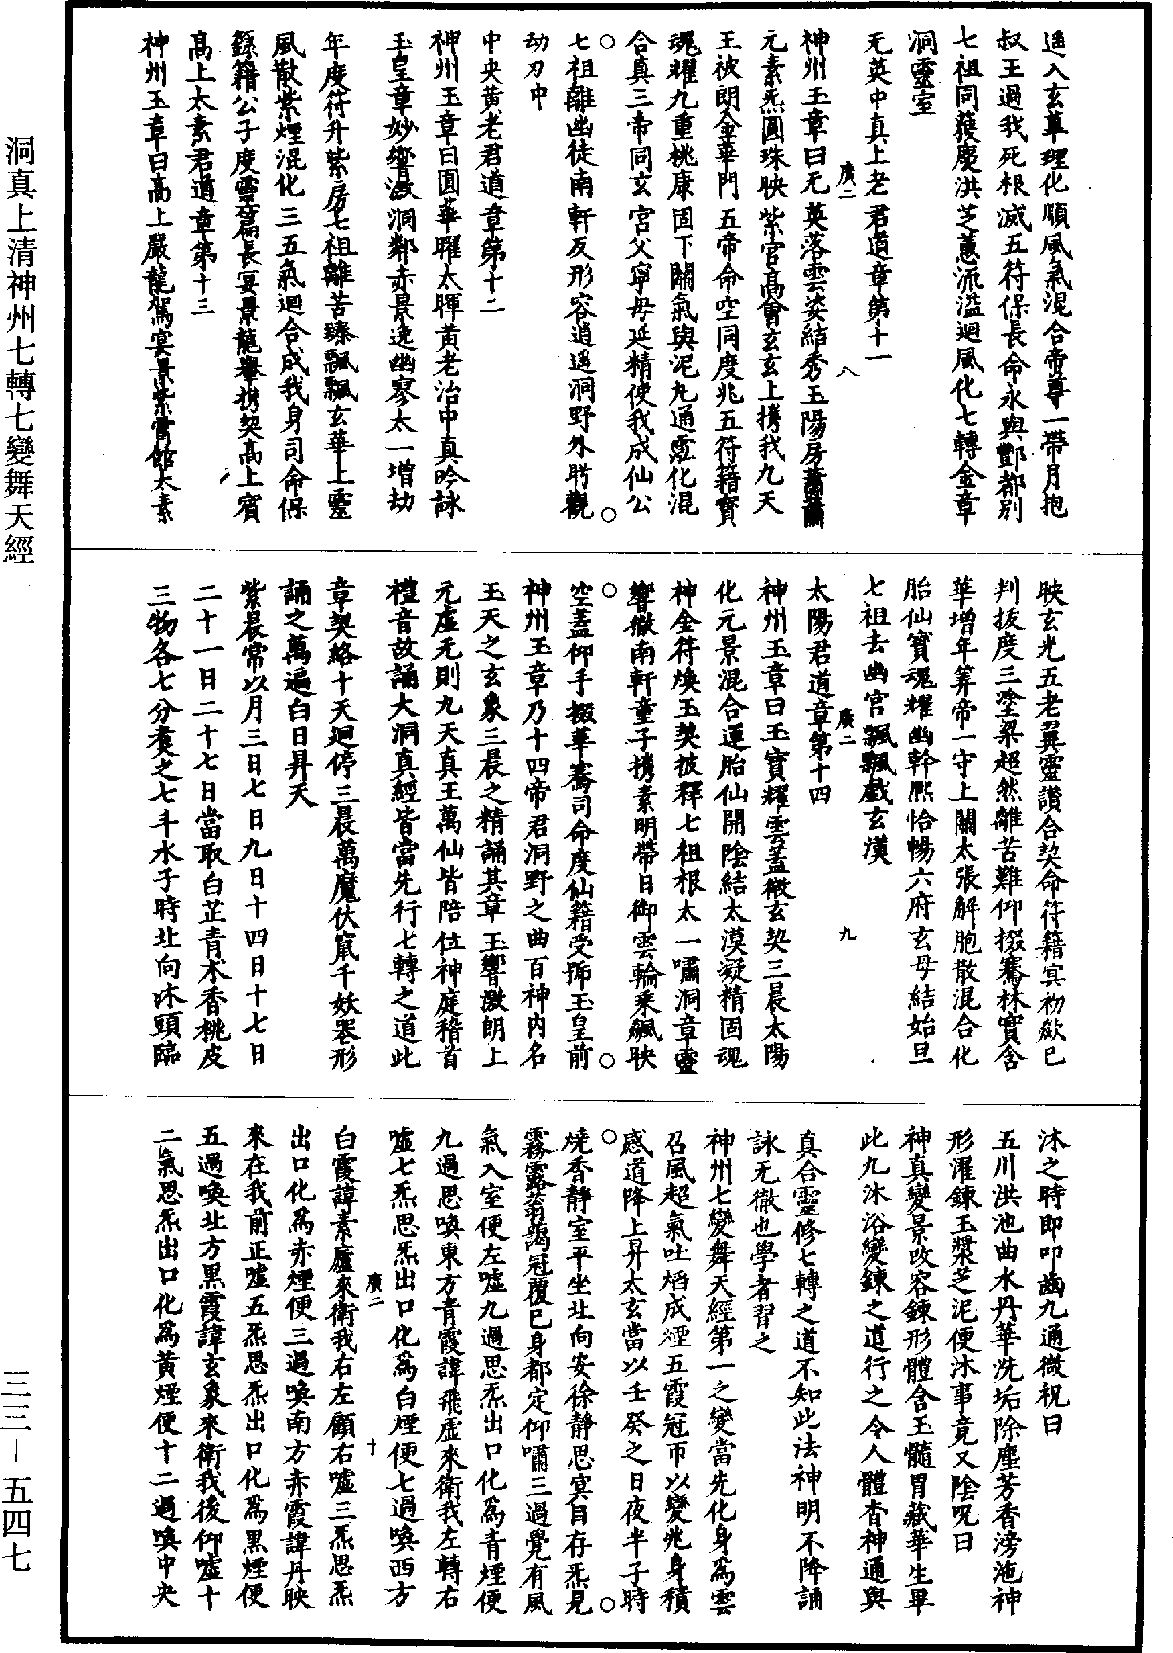 遥入玄草理化順風氣混合帝尊一帶月抱
叔王過我死根滅五符保長命永與酆都別
七祖同護慶洪芝蕙流溢迴風化七轉金章
洞靈室
无英中真上老君道章第十一
廣二 八
神州玉章曰无英落雲姿結秀玉陽房蕭蕭
元素炁圓珠映紫宮高會玄玄上携我九天
王被朗金華門五帝命空同度兆五符籍寶
魂耀九重桃康固下關氣與泥丸通靈化混
合真三帝同玄宮父寧母延精使我成仙公
七祖離幽徒南軒反形容逍遥洞野外眄觀
劫刃中
中央黄老君道章第十二
神州玉章曰圓華曜太暉黄老治中真吟詠
玉皇章妙響激洞鄰赤景逸幽寥太一增劫
年度符升紫房七祖離苦臻飄飄玄華上靈
風散紫煙混化三五氣迴合成我身司命保
籙籍公子度靈篇長宴景龍轝携契高上賓
高上太素君道章第十三
神州玉章曰高上嚴龍駕宴景紫霄館太素
映玄光五老翼靈讚合契命符籍冥初歘已
判拔度三塗梁超然離苦難仰掇騫林實含
華增年筭帝一守上關太張解胞散混合化
胎仙寶魂耀幽幹熙怡暢六府玄母結始旦
七祖去幽宮飄飄戲玄漢
廣二 九
太陽君道章第十四
神州玉章曰玉寶耀雲蓋微玄契三晨太陽
化元景混合運胎仙開陰結太漠凝精固魂
神金符煥玉契披釋七祖根太一嘯洞章靈
響激南軒童子携素明帶日御雲輪乘飈映
空蓋仰手掇華騫司命度仙籍受號玉皇前
神州玉章乃十四帝君洞野之曲百神内名
玉天之玄象三晨之精誦其章玉響激朗上
元虛无則九天真王萬仙皆陪位神庭稽首
禮音故誦大洞真經皆當先行七轉之道此
章契絡十天迴停三晨萬魔伏竄千妖喪形
誦之萬遍白日昇天
紫晨常以月三日七日九日十四日十七日
二十一日二十七日當取白芷青木香桃皮
三物各七分煑之七斗水子時北向沐頭臨
沐之時即叩齒九通微祝曰
五川洪池曲水丹華洗垢除塵芳香滂沲神
形濯鍊玉漿芝泥便沐事竟又陰呪曰
神真變景改容鍊形體含玉髓胃藏華生畢
此九沐浴變鍊之道行之令人體香神通與
真合靈修七轉之道不知此法神明不降誦
詠无徹也學者習之
神州七變舞天經第一之變當先化身爲雲
召風超氣吐焰成煙五霞冠帀以變兆身積
感道降上昇太玄當以壬癸之日夜半子時
燒香靜室平坐北向安徐靜思冥目存炁見
霧露蓊藹冠覆已身都定仰嘯三過覺有風
氣入室便左噓九過思炁出口化爲青煙便
九過思喚東方青霞諱飛虛來衛我左轉右
噓七炁思炁出口化爲白煙便七過喚西方
廣二 十
白霞諱素廬來衛我右左顧右噓三炁思炁
出口化爲赤煙便三過喚南方赤霞諱丹映
來在我前正噓五炁思炁出口化爲黒煙便
五過喚北方黒霞諱玄象來衛我後仰噓十
二氣思炁出口化爲黄煙便十二過喚中央
洞真上清神州七轉七變舞天經
三三－五四七